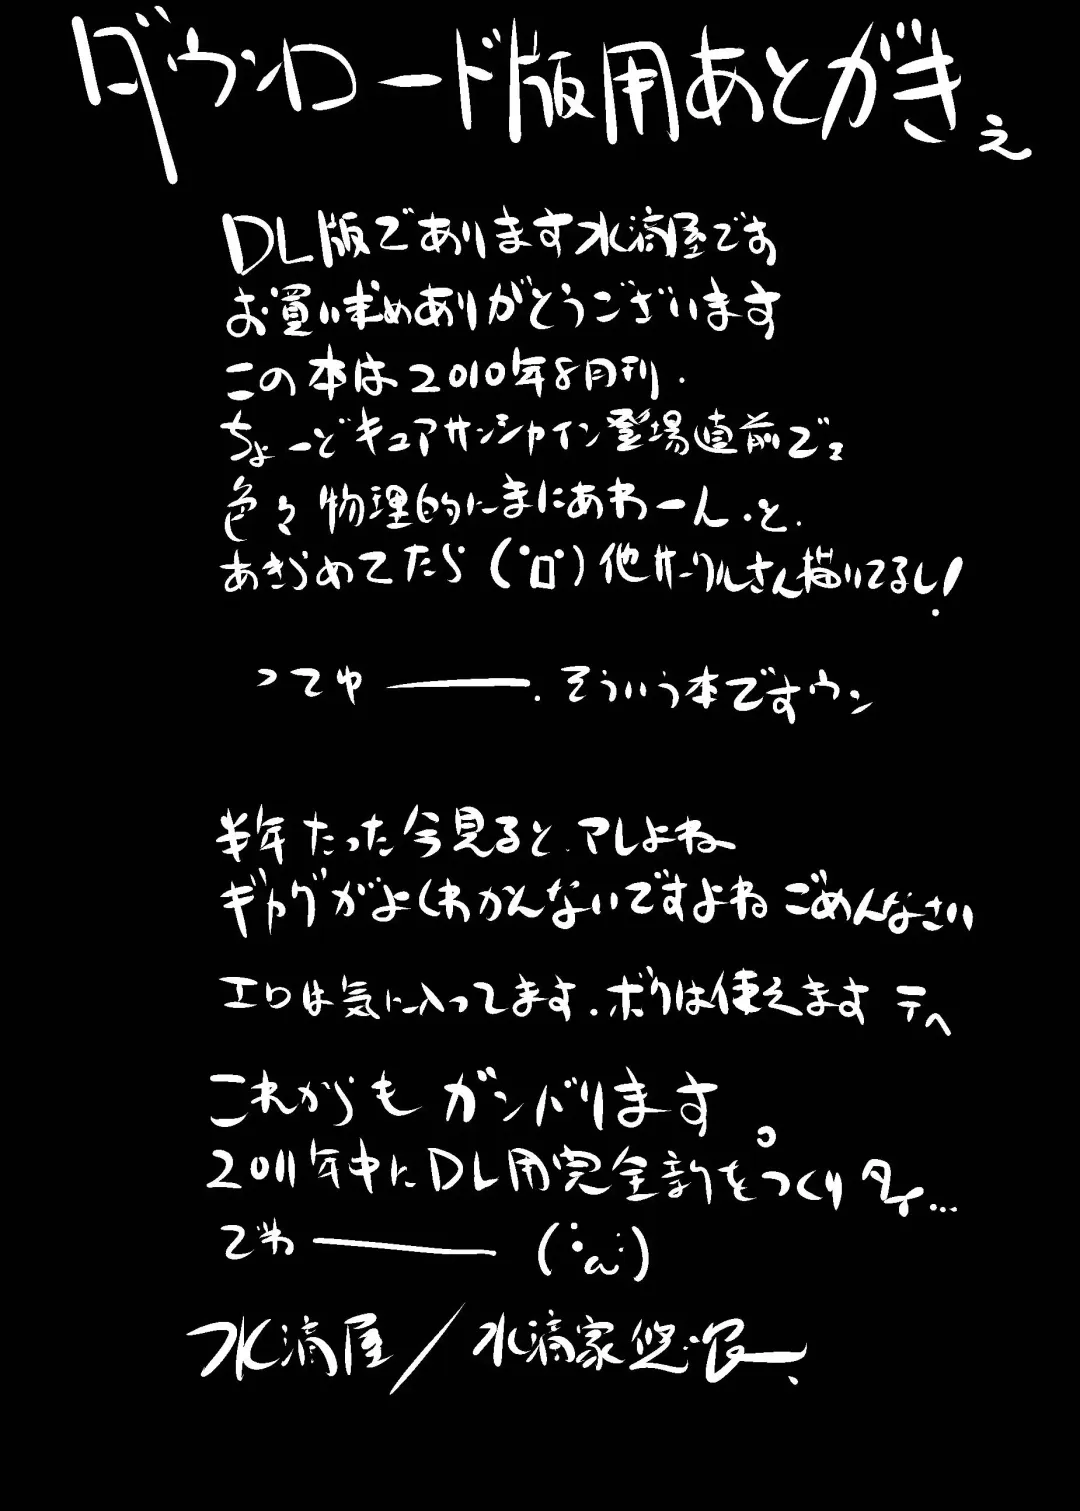 ダウンロード版用あとがきぇ
DL版であります水滴屋です
お買い求めありがとうございます
この本は2010年8月刊.
ちょーどキュアサンシャイン登場直前でェ
色々物理的にまにあわーん.と.
あきらめてたら(°ロ°)他サークルさん描いてるし!
ってゆー.そういう本ですウン
半年たった今見ると.アレよね
ギャグがよくわかんないですよねごめんなさい
エロは気に入ってます.ボクは使えます テヘ
これからもガンバリます。
2011年中にDL用完全新をつくりタイ...
でわー
水滴屋/水滴家